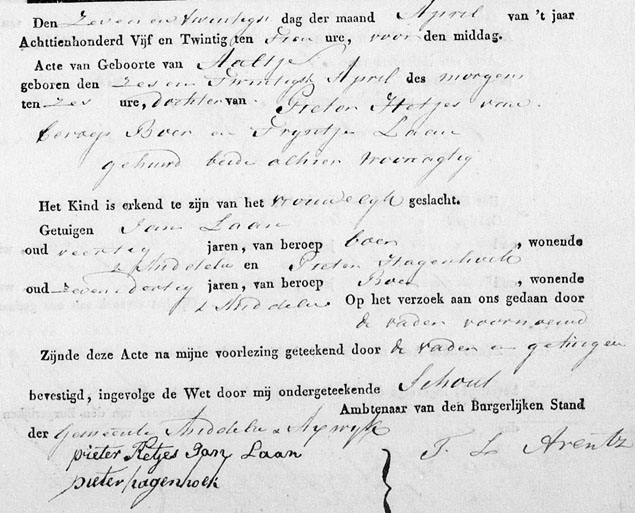 Den zeven en twintigst dag der maand April van 't jaar
Achttienhonderd Vijf en Twintig ten Tien ure, voor den middag.
Acte van Geboorte van Aaltje
geboren den zes en Twintigst April des morgens
ten zes ure, dochter van Pieter Hetjes van
beroep Boer en Tryntje Laan
gehuwd beide alhier woonagtig
Het Kind is erkend te zijn van het vrouwelyk geslacht.
Getuigen Jan Laan
oud veertig jaren, van beroep boer, wonende
te Middelie en Pieter Hagenhoek
oud zeven dertig jaren, van beroep Boer, wonende
te Middelie Op het verzoek aan ons gedaan door
de vader voornoemd
Zijnde deze Acte na mijne voorlezing geteekend door de vader en getuigen
bevestigd, ingevolge de Wet door mij ondergeteekende Schout
Ambtenaar van den Burgerlijken Stand
der Gemeente Middelie & Axwyk
pieter Hetjes Jan Laan
T. L. Arentz
pieter hagenhoek